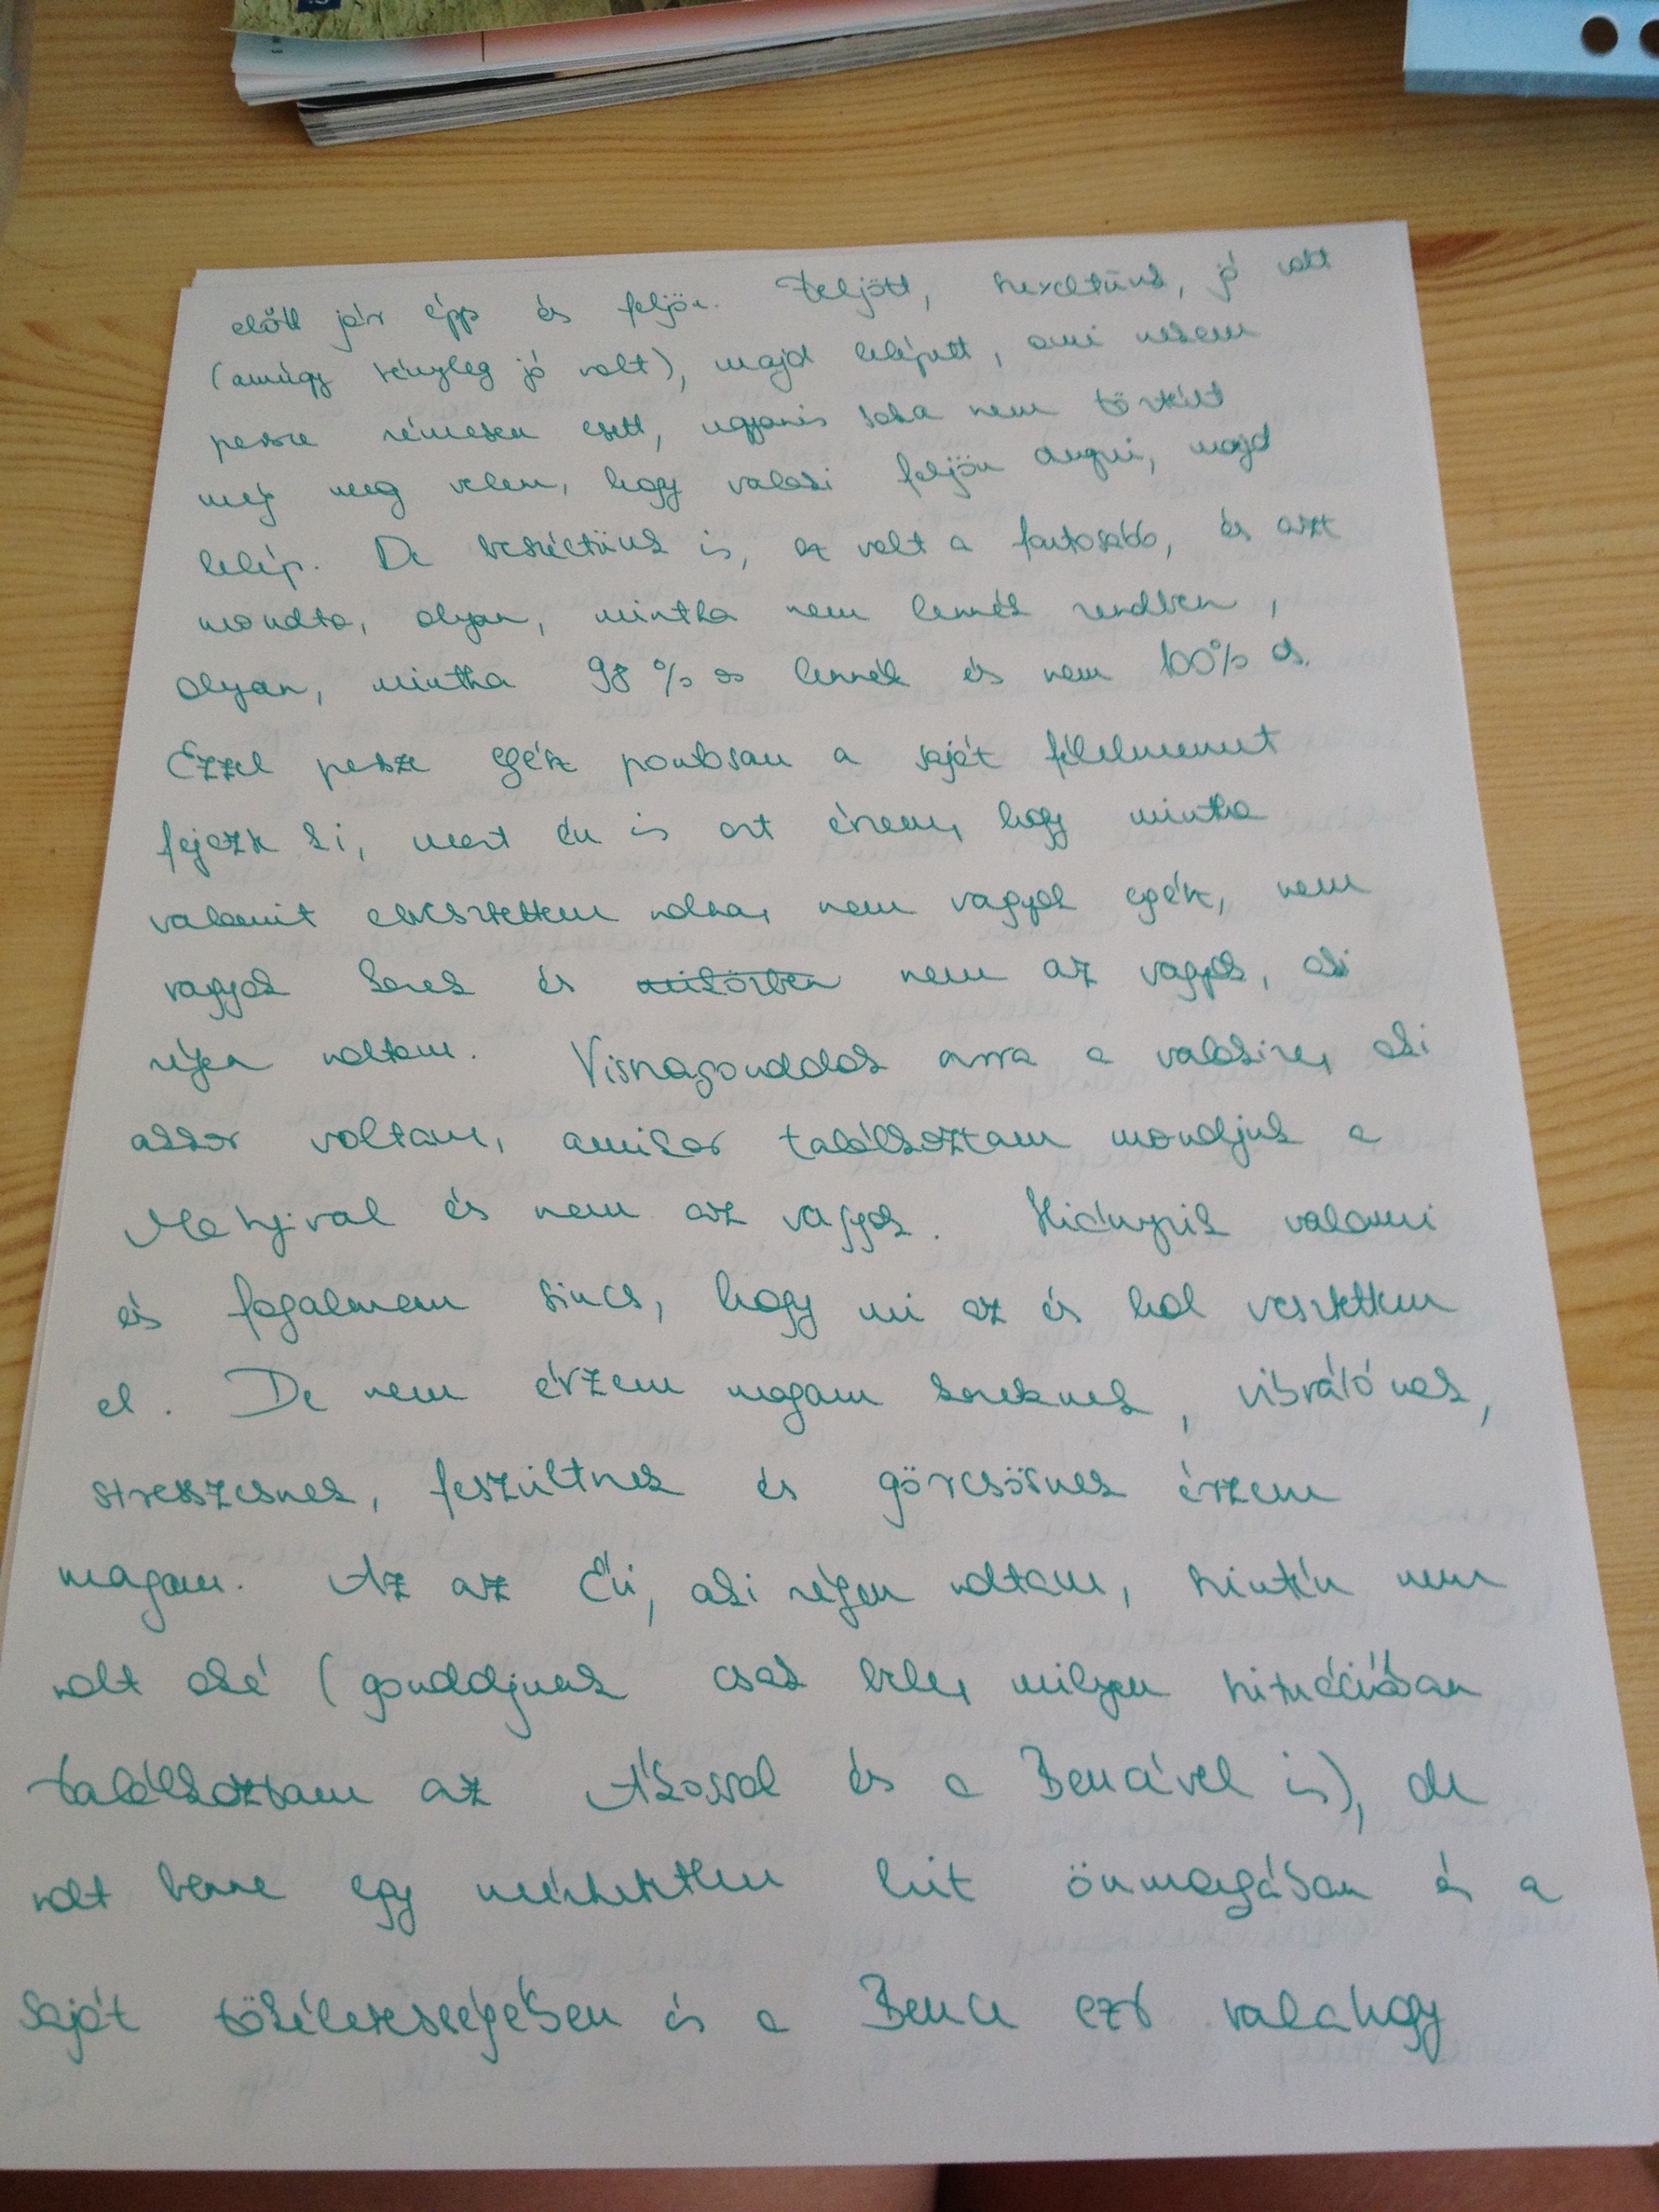 előtt jár épp és feljön. Feljött, szexeltünk, jó volt
(amúgy tényleg jó volt), majd lelépett, ami nekem
persze rémesen esett, ugyanis soha nem történt
még meg velem, hogy valaki feljön dugni, majd
lelép. De beszéltünk is, ez volt a fontosabb, és azt
mondta, olyan, mintha nem lennék rendben,
olyan, mintha 98%os lennék és nem 100%os.
Ezzel persze egész pontosan a saját félelmemet
fejezte ki, mert én is azt érzem, hogy mintha
valamit elvesztettem volna, nem vagyok egész, nem
vagyok kerek és miközben nem az vagyok, aki
régen voltam. Visszagondolok arra a valakire, aki
akkor voltam, amikor találkoztam mondjuk a
Matyival és nem az vagyok. Hiányzik valami
és fogalmam sincs, hogy mi az és hol vesztettem
el. De nem érzem magam kereknek, vibrálónak,
stresszesnek, feszültnek és görcsösnek érzem
magam. Az az Én, aki régen voltam, szintén nem
volt oké (gondoljunk csak bele, milyen szituációban
találkoztam az Ákossal és a Bencével is), de
volt benne egy mérhetetlen hit önmagában és a
saját tökéletességében és a Bence ezt valahogy